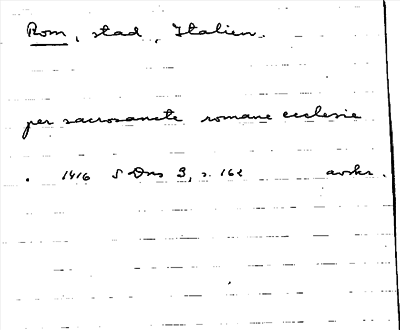 Rom, stad, Italien.
per sacrosancte romane ecclesie
. 1416 S Dns 3, s. 162 avskr.